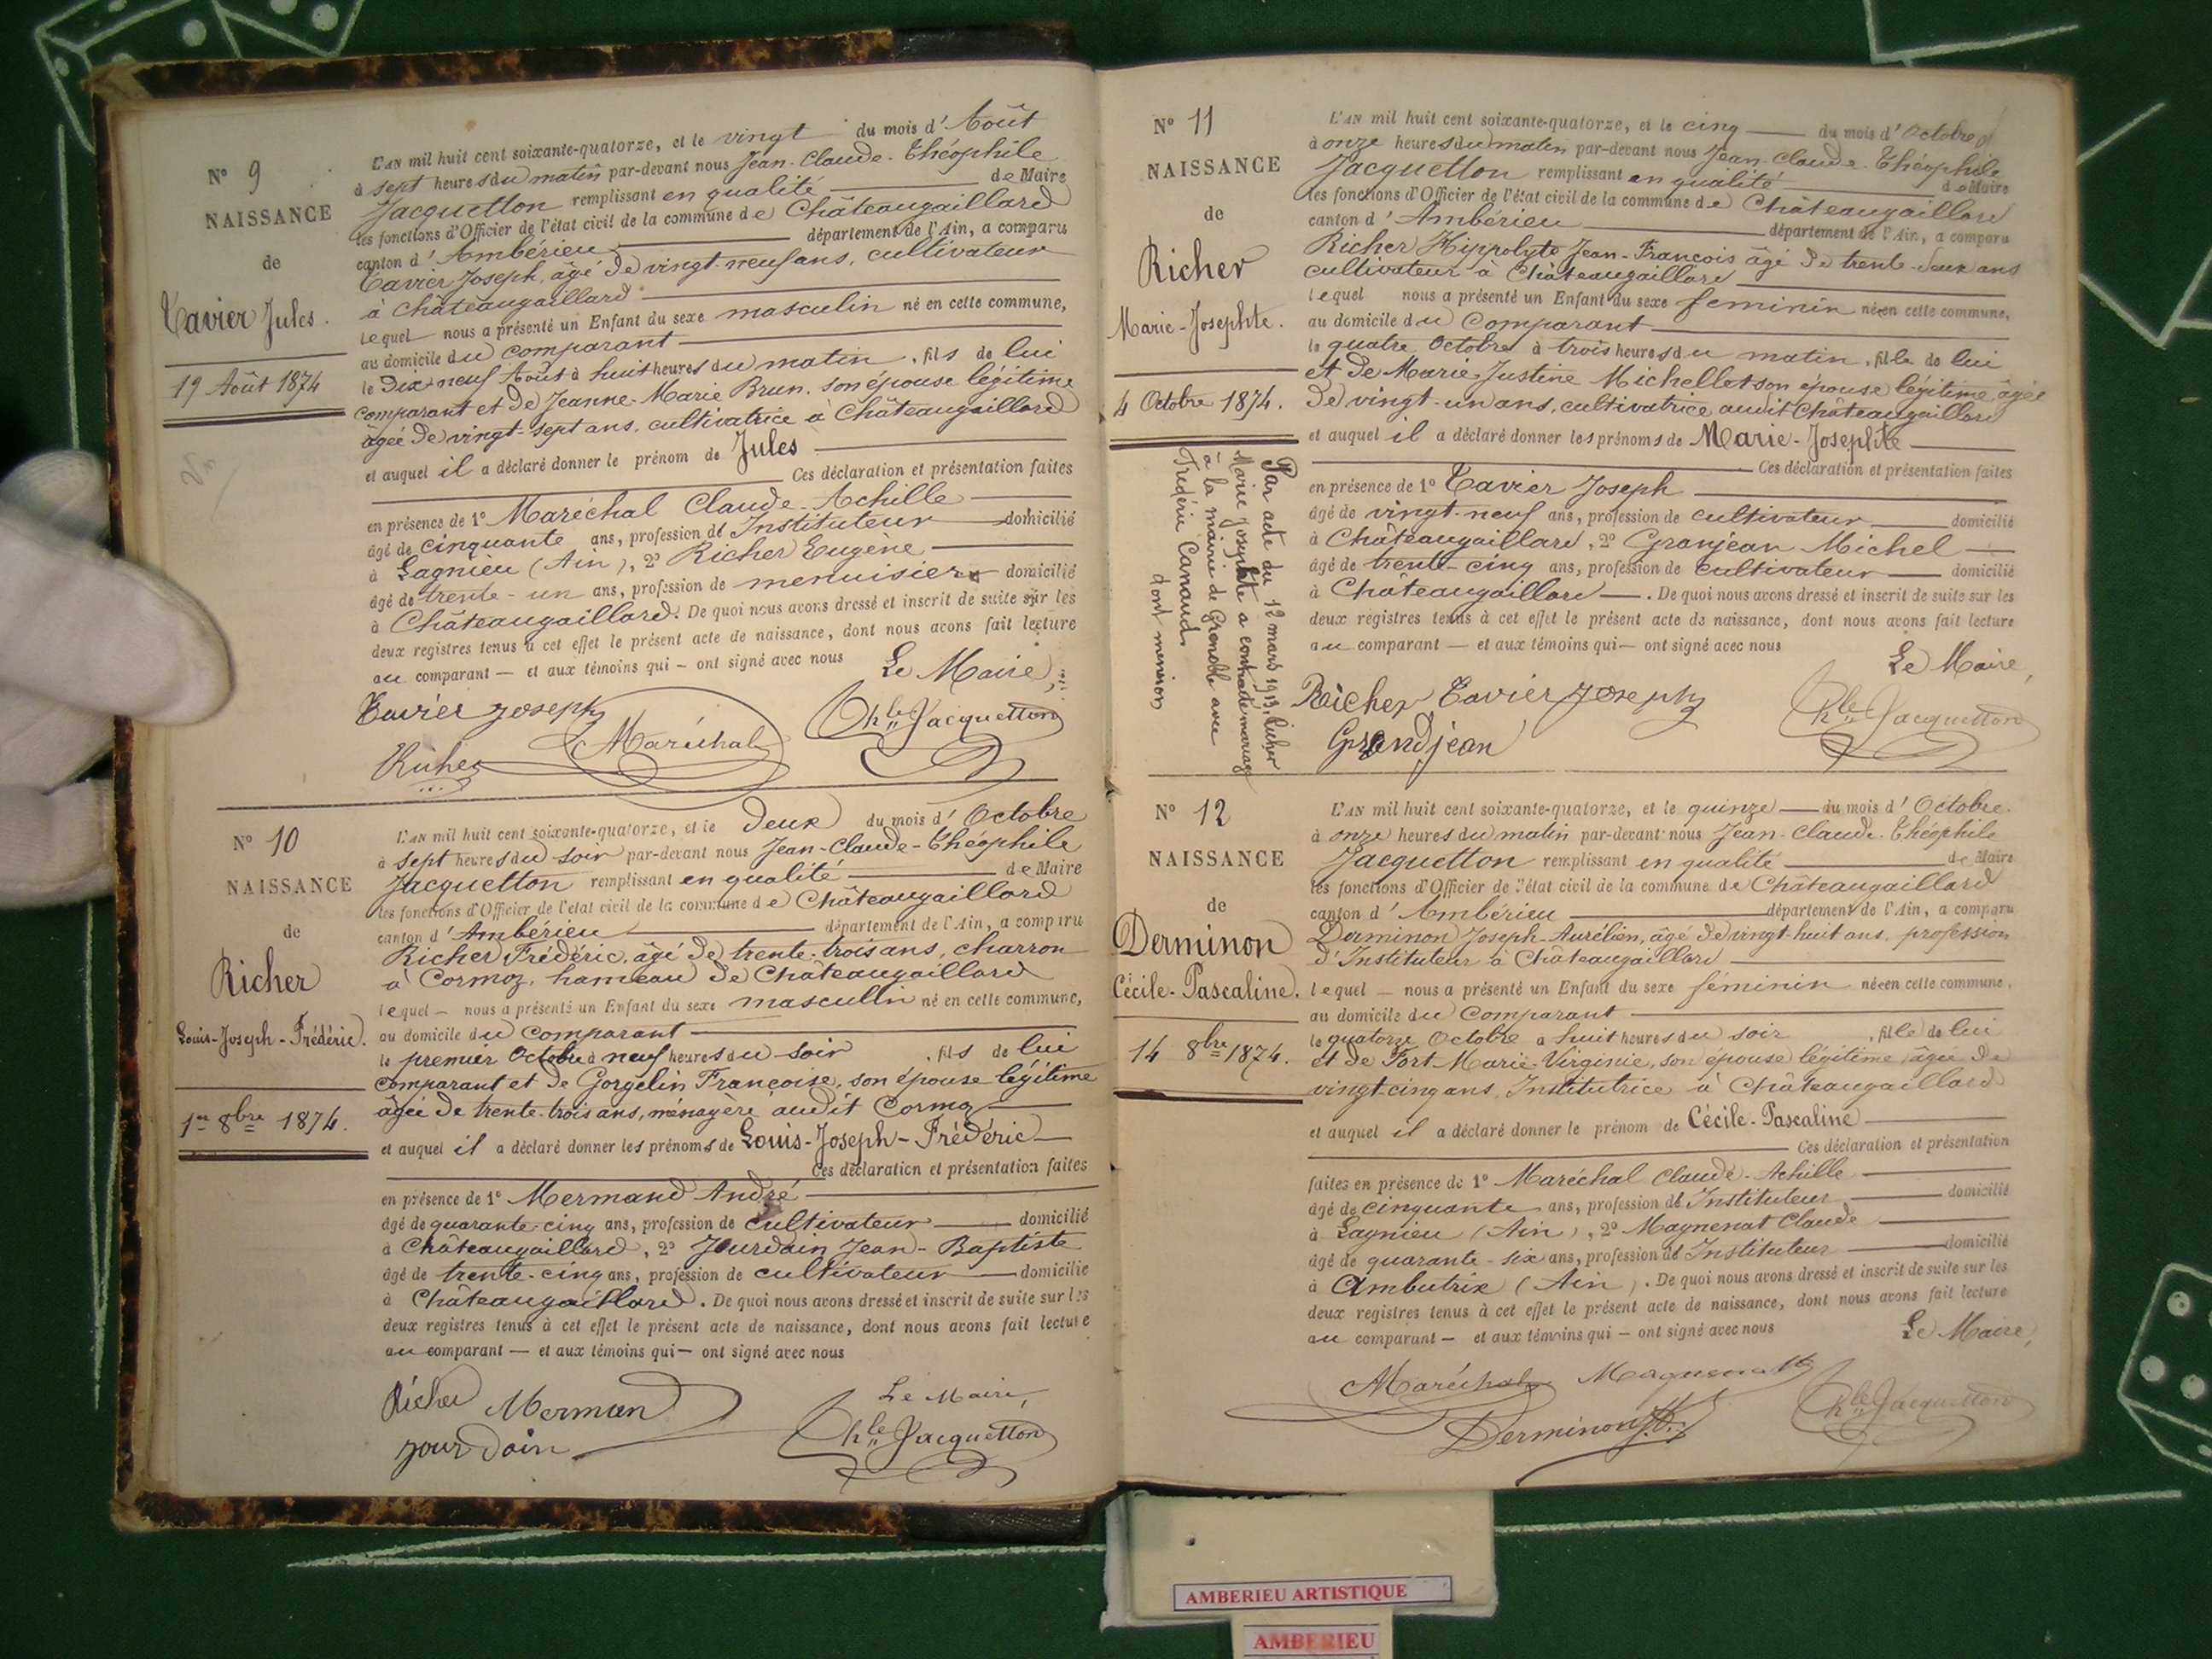 N° 9
NAISSANCE
de
Tavier Jules.
19 Août 1874
L'AN mil huit cent soixante-quatorze, et le vingt du mois d'Août
à sept heures du matin par-devant nous Jean-Claude-Théophile
Jacquetton remplissant en qualité de Maire
les fonctions d'Officier de l'état civil de la commune de Châteaugaillard
canton d'Ambérieu département de l'Ain, a comparu
Tavier Joseph, âgé de vingt-neuf ans, cultivateur
à Châteaugaillard
lequel nous a présenté un Enfant du sexe masculin né en cette commune,
au domicile du comparant
le dix-neuf Août à huit heures du matin, fils de lui
comparant et de Jeanne-Marie Brun, son épouse légitime
âgée de vingt-sept ans, cultivatrice à Châteaugaillard
et auquel il a déclaré donner le prénom de Jules
Ces déclaration et présentation faites
en présence de 1° Maréchal Claude-Achille
âgé de cinquante ans, profession de Instituteur domicilié
à Lagnieu (Ain), 2° Richer Eugène
âgé de trente-un ans, profession de menuisier domicilié
à Châteaugaillard. De quoi nous avons dressé et inscrit de suite sur les
deux registres tenus à cet effet le présent acte de naissance, dont nous avons fait lecture
au comparant — et aux témoins qui — ont signé avec nous
Le Maire,
Tavier Joseph
Maréchal
Ch^le Jacquetton
Richer
N° 10
NAISSANCE
de
Richer
Louis-Joseph-Frédéric.
1er 8bre 1874.
L'AN mil huit cent soixante-quatorze, et le deux du mois d'Octobre
à sept heures du soir par-devant nous Jean-Claude-Théophile
Jacquetton remplissant en qualité de Maire
les fonctions d'Officier de l'état civil de la commune de Châteaugaillard
canton d'Ambérieu département de l'Ain, a comparu
Richer Frédéric, âgé de trente-trois ans, charron
à Cormoz, hameau de Châteaugaillard
lequel — nous a présenté un Enfant du sexe masculin né en cette commune,
au domicile du comparant
le premier Octobre à neuf heures du soir, fils de lui
comparant et de Gorgelin Françoise, son épouse légitime
âgée de trente-trois ans, ménagère audit Cormoz
et auquel il a déclaré donner les prénoms de Louis-Joseph-Frédéric
Ces déclaration et présentation faites
en présence de 1° Mermand André
âgé de quarante-cinq ans, profession de cultivateur domicilié
à Châteaugaillard, 2° Jourdain Jean-Baptiste
âgé de trente-cinq ans, profession de cultivateur domicilié
à Châteaugaillard. De quoi nous avons dressé et inscrit de suite sur les
deux registres tenus à cet effet le présent acte de naissance, dont nous avons fait lecture
au comparant — et aux témoins qui — ont signé avec nous
Le Maire,
Richer Merman
Ch^le Jacquetton
Jourdain
N° 11
NAISSANCE
de
Richer
Marie-Josephte.
4 Octobre 1874.
Par acte du 12 mars 1913, Richer
Marie Josephte a contracté mariage
à la mairie de Grenoble avec
Frédéric Canaud
dont mention
L'AN mil huit cent soixante-quatorze, et le cinq du mois d'Octobre
à onze heures du matin par-devant nous Jean-Claude-Théophile
Jacquetton remplissant en qualité de Maire
les fonctions d'Officier de l'état civil de la commune de Châteaugaillard
canton d'Ambérieu département de l'Ain, a comparu
Richer Hippolyte Jean-François âgé de trente-deux ans
cultivateur à Châteaugaillard
lequel nous a présenté un Enfant du sexe féminin née en cette commune,
au domicile du Comparant
le quatre Octobre à trois heures du matin, fille de lui
et de Marie-Justine Michellet son épouse légitime âgée
de vingt-un ans, cultivatrice audit Châteaugaillard
et auquel il a déclaré donner les prénoms de Marie-Josephte
Ces déclaration et présentation faites
en présence de 1° Tavier Joseph
âgé de vingt-neuf ans, profession de cultivateur domicilié
à Châteaugaillard, 2° Granjean Michel
âgé de trente-cinq ans, profession de cultivateur domicilié
à Châteaugaillard —. De quoi nous avons dressé et inscrit de suite sur les
deux registres tenus à cet effet le présent acte de naissance, dont nous avons fait lecture
au comparant — et aux témoins qui — ont signé avec nous
Le Maire,
Richer Tavier Joseph
Ch^le Jacquetton
Grandjean
N° 12
NAISSANCE
de
Derminon
Cécile-Pascaline.
14 8bre 1874.
L'AN mil huit cent soixante-quatorze, et le quinze du mois d'Octobre.
à onze heures du matin par-devant nous Jean-Claude-Théophile
Jacquetton remplissant en qualité de Maire
les fonctions d'Officier de l'état civil de la commune de Châteaugaillard
canton d'Ambérieu département de l'Ain, a comparu
Derminon Joseph-Aurélien, âgé de vingt-huit ans, profession
d'Instituteur à Châteaugaillard
lequel — nous a présenté un Enfant du sexe féminin née en cette commune,
au domicile du Comparant
le quatorze Octobre à huit heures du soir, fille de lui
et de Fort Marie-Virginie, son épouse légitime, âgée de
vingt-cinq ans, Institutrice à Châteaugaillard
et auquel il a déclaré donner le prénom de Cécile-Pascaline
Ces déclaration et présentation
faites en présence de 1° Maréchal Claude-Achille
âgé de cinquante ans, profession de Instituteur domicilié
à Lagnieu (Ain), 2° Magnenat Claude
âgé de quarante-six ans, profession de Instituteur domicilié
à Ambutrix (Ain). De quoi nous avons dressé et inscrit de suite sur les
deux registres tenus à cet effet le présent acte de naissance, dont nous avons fait lecture
au comparant — et aux témoins qui — ont signé avec nous
Le Maire,
Maréchal Magnenat
Derminon J.A.
Ch^le Jacquetton
AMBERIEU ARTISTIQUE
AMBERIEU